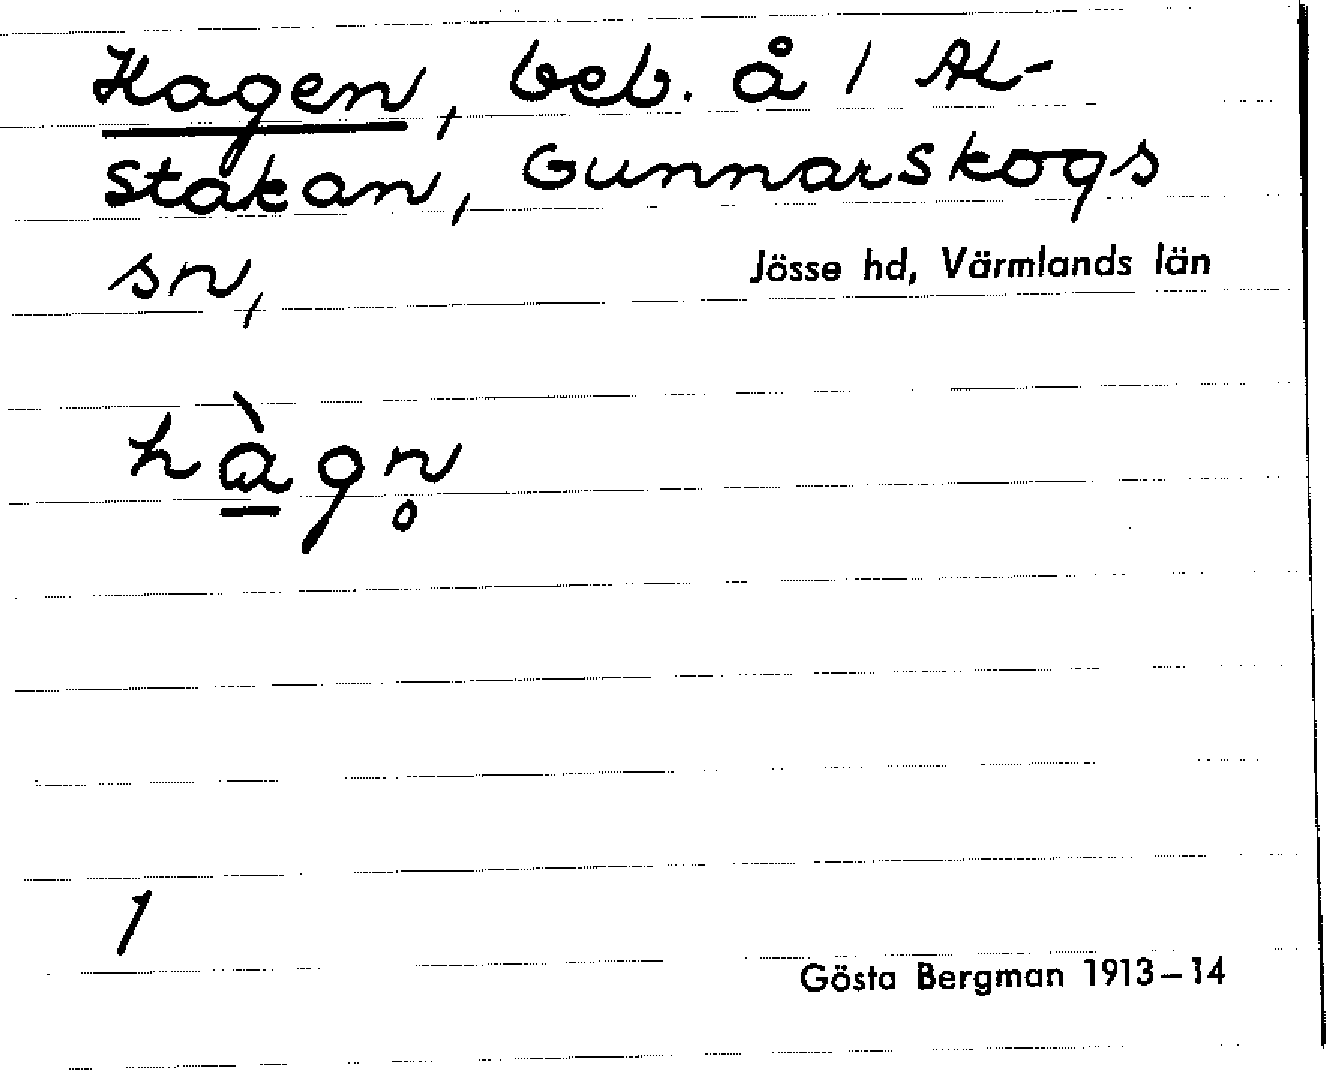 Hagen, beb. å 1 Al-
stakan, Gunnarskogs
sn, Jösse hd, Värmlands län
hàgn̥
1
Gösta Bergman 1913–14